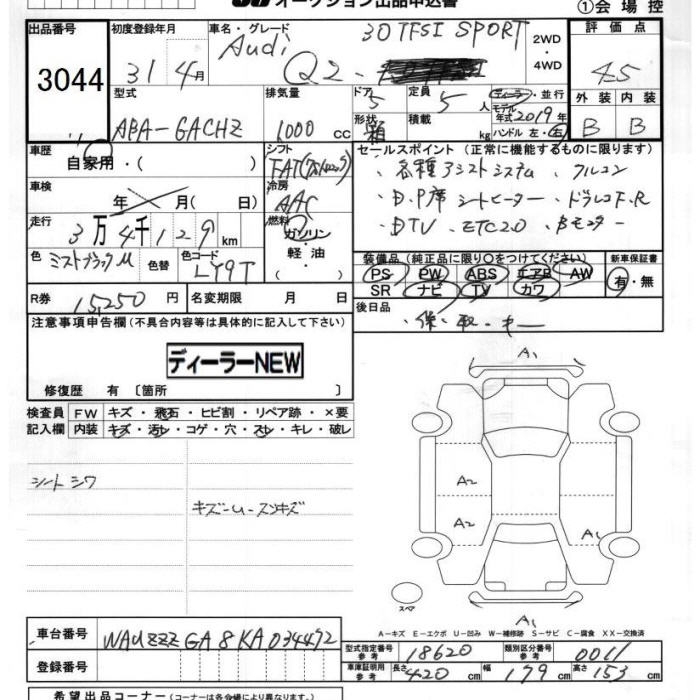 オークション出品申込書
①会場控
出品番号
3044
初度登録年月
31年4月
車名・グレード
Audi Q2 30TFSI SPORT
2WD・4WD
評価点
4.5
型式
ABA-GACHZ
排気量
1000cc
ドア
5
形状
定員
5人
積載
kg
ディーラー・並行
モデル年式2019年
ハンドル 左・右
外装
B
内装
B
車歴
自家用・( )
シフト
FAT
セールスポイント(正常に機能するものに限ります)
・各種アシストシステム ・フルコン
・D.P席シートヒーター ・ドラレコF.R
・DTV ・ETC2.0 ・Bモニター
車検
年 月( 日)
冷房
AAC
走行
3万4千129km
燃料
ガソリン・軽油
色
ミストブラックM
色替
色コード
LY9T
装備品(純正品に限り○をつけてください)
PS PW ABS エアB AW
SR ナビ TV カワ
新車保証書
有・無
R券
15,250円
名変期限 月 日
後日品
・保・取・キー
注意事項申告欄(不具合内容等は具体的に記入して下さい)
ディーラーNEW
修復歴 有〔箇所 〕
検査員記入欄
FW キズ・飛石・ヒビ割・リペア跡・×要
内装 キズ・汚レ・コゲ・穴・スレ・キレ・破レ
シートシワ
A1
A2
A2
A1
スペア
A1
A-キズ E-エクボ U-凹み W-補修跡 S-サビ C-腐食 XX-交換済
車台番号
WAUZZZGA8KA034492
登録番号
型式指定番号 参考
18620
類別区分番号 参考
0011
車庫証明用 参考
長さ 420cm 幅 179cm 高さ 153cm
希望出品コーナー(コーナーは各会場により異なります。)